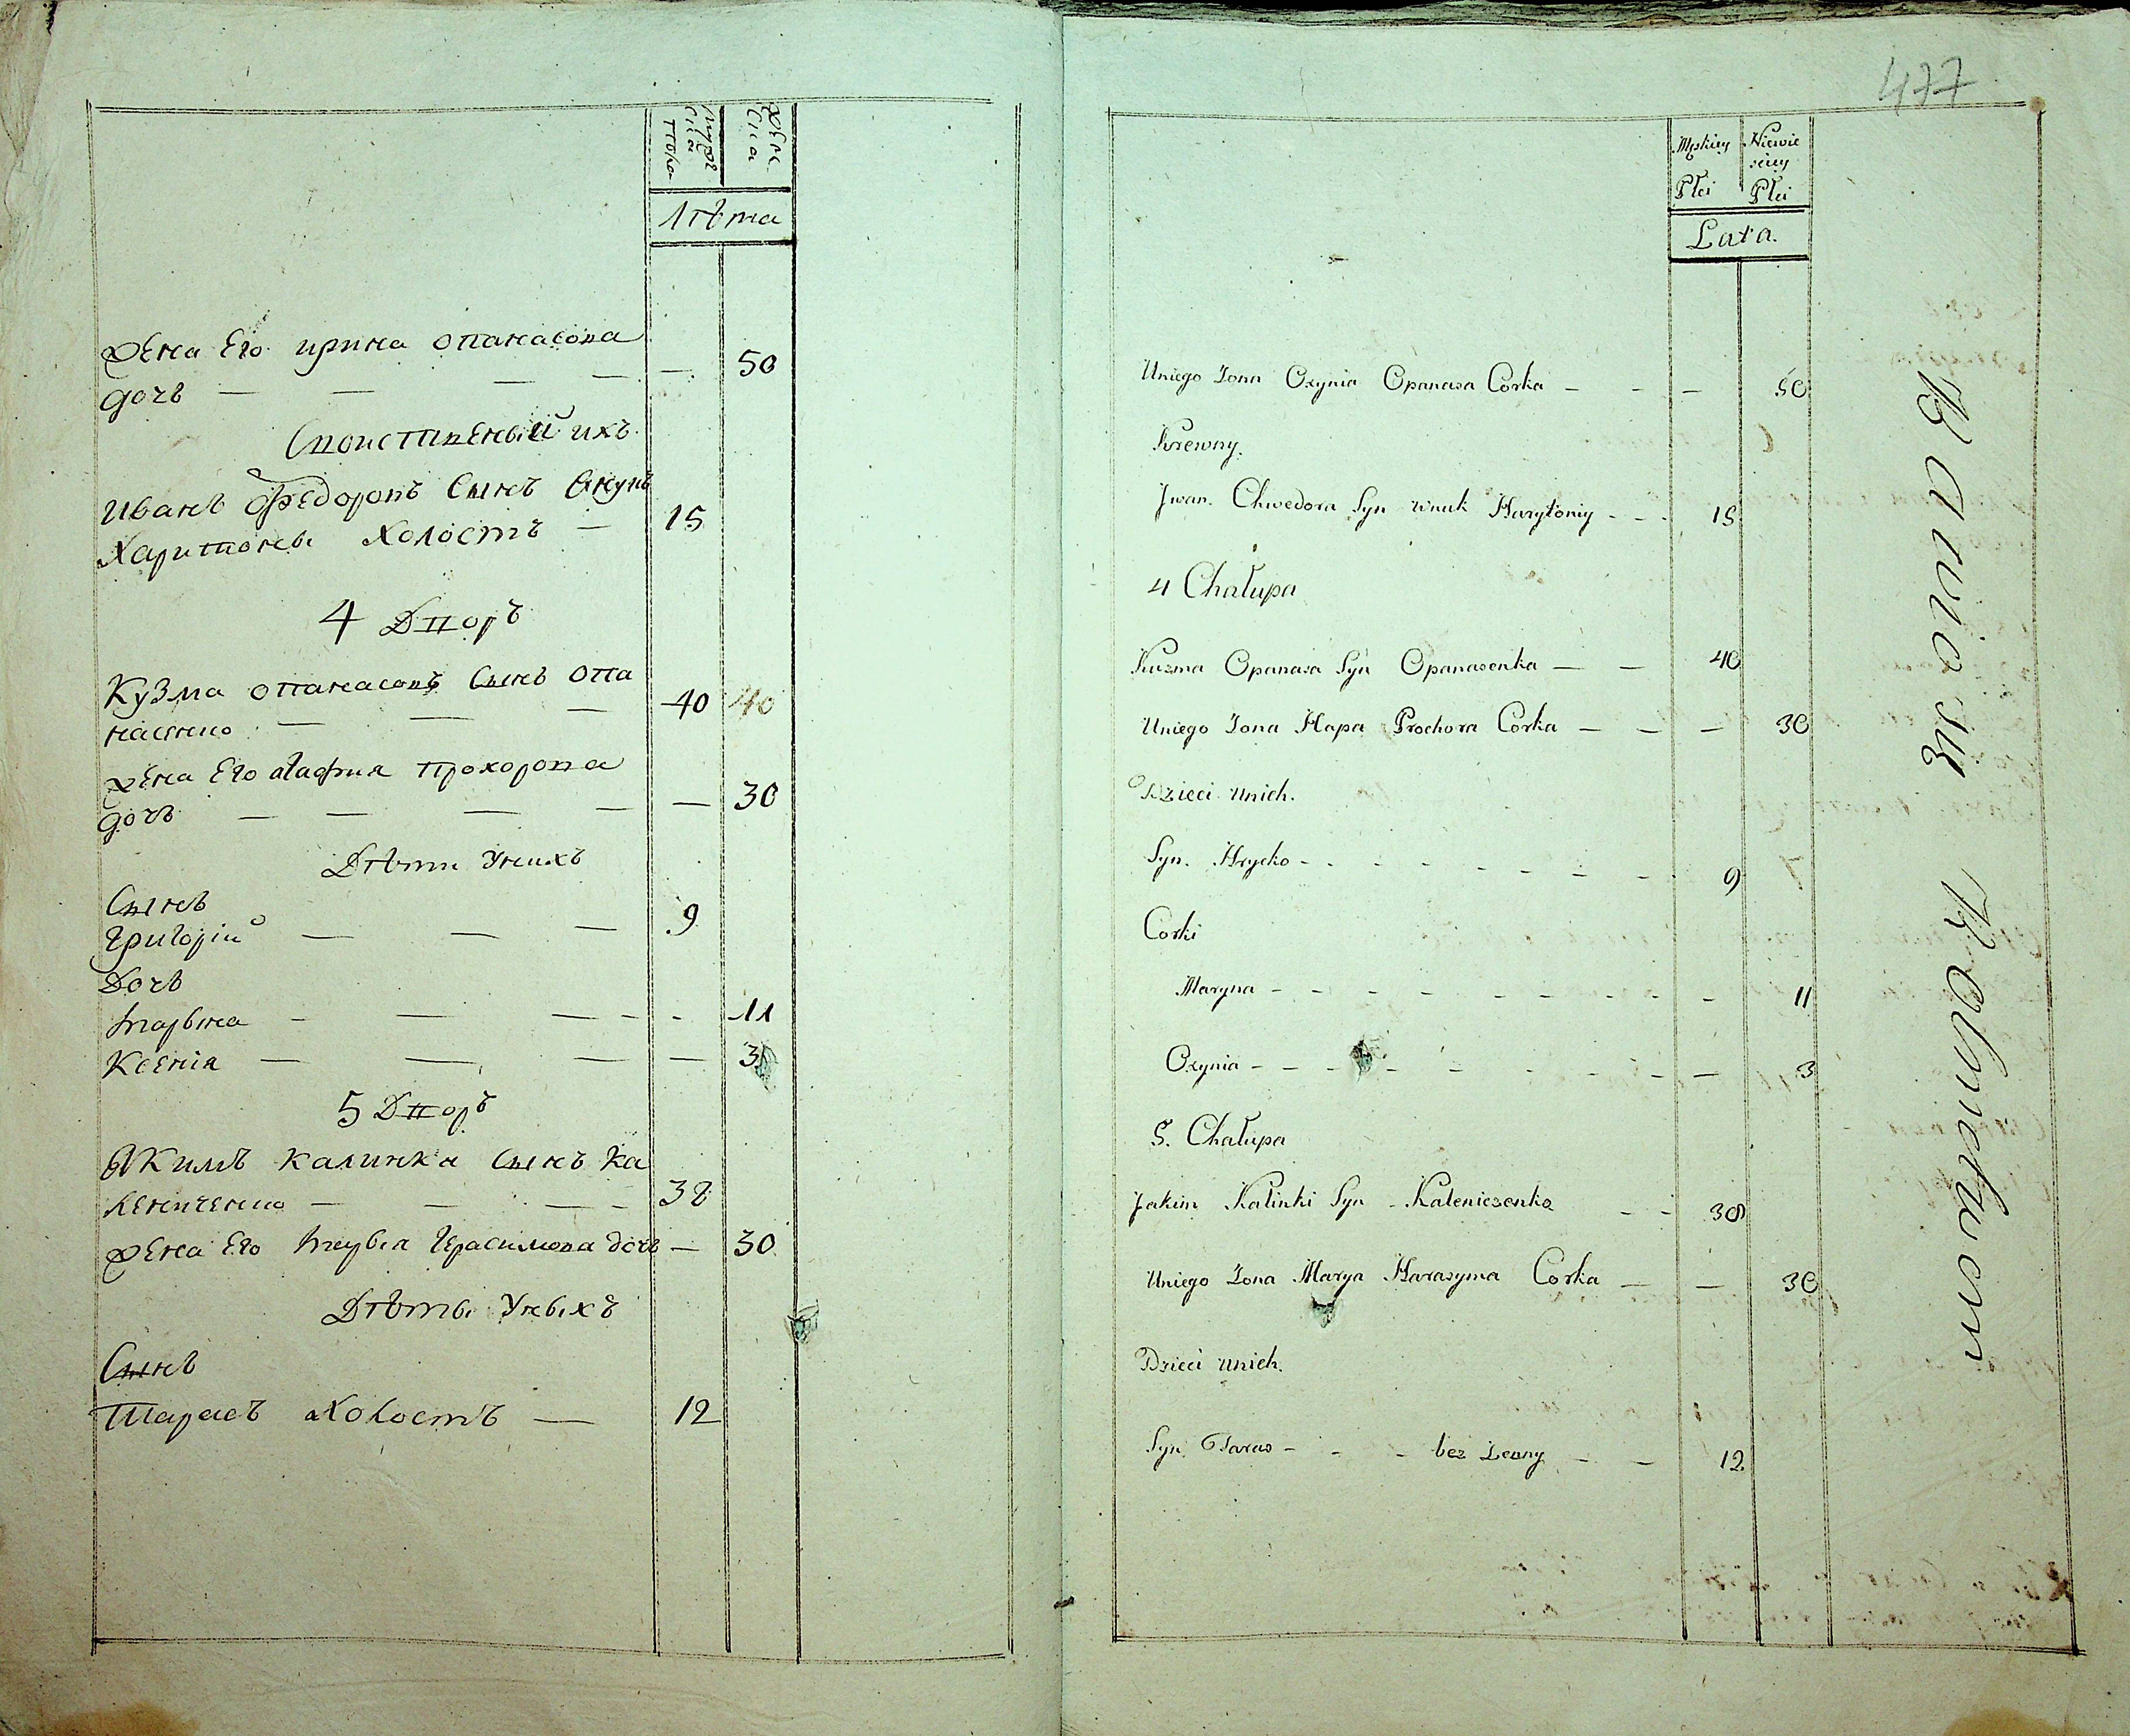 Муж:
ска
пола
Жен
ска
Лѣта
Жена Его ирина опанасова
дочь — — — — — 50
Своиственый ихъ
Иванъ Федоровъ Сынъ внукъ
Харитоновы Холостъ — 15
4 Дворъ
Кузма опанасовъ Сынъ опа
насенко — — — 40 40
жена Его агафия прохорова
дочь — — — — — 30
Дѣти Унихъ
Сынъ
Григорій — — — 9
Дочь
марына — — — - - 11
Ксенія — — — — 3
5 Дворъ
Якимъ калинки Сынъ ка
ленеченко — — — - 38
жена Его марья Герасимова дочь — 30
Дѣты Уныхъ
Сынъ
Тарасъ Холостъ — 12
477
Męskiey Płci
Niewie sciey Płci
Lata.
Uniego Żona Oxynia Opanasa Corka — - — 50
Krewny.
Jwan. Chwedora Syn wnuk Harytoniy - - - 15
4 Chałupa
Kuzma Opanasa Syn Opanasenka — — 40
Uniego Żona Hapa Prochora Corka — — — 30
Dzieci unich.
Syn. Hrycko - - - - - - - - 9
Corki
Maryna - - - - - - - - - - 11
Oxynia - - - - - - - - — 3
5. Chałupa
Jakim Kalinki Syn Kaleniczenko - - 38
Uniego Żona Marya Harasyma Corka — — 30
Dzieci unich.
Syn Taras - - - bez Żenny - — 12